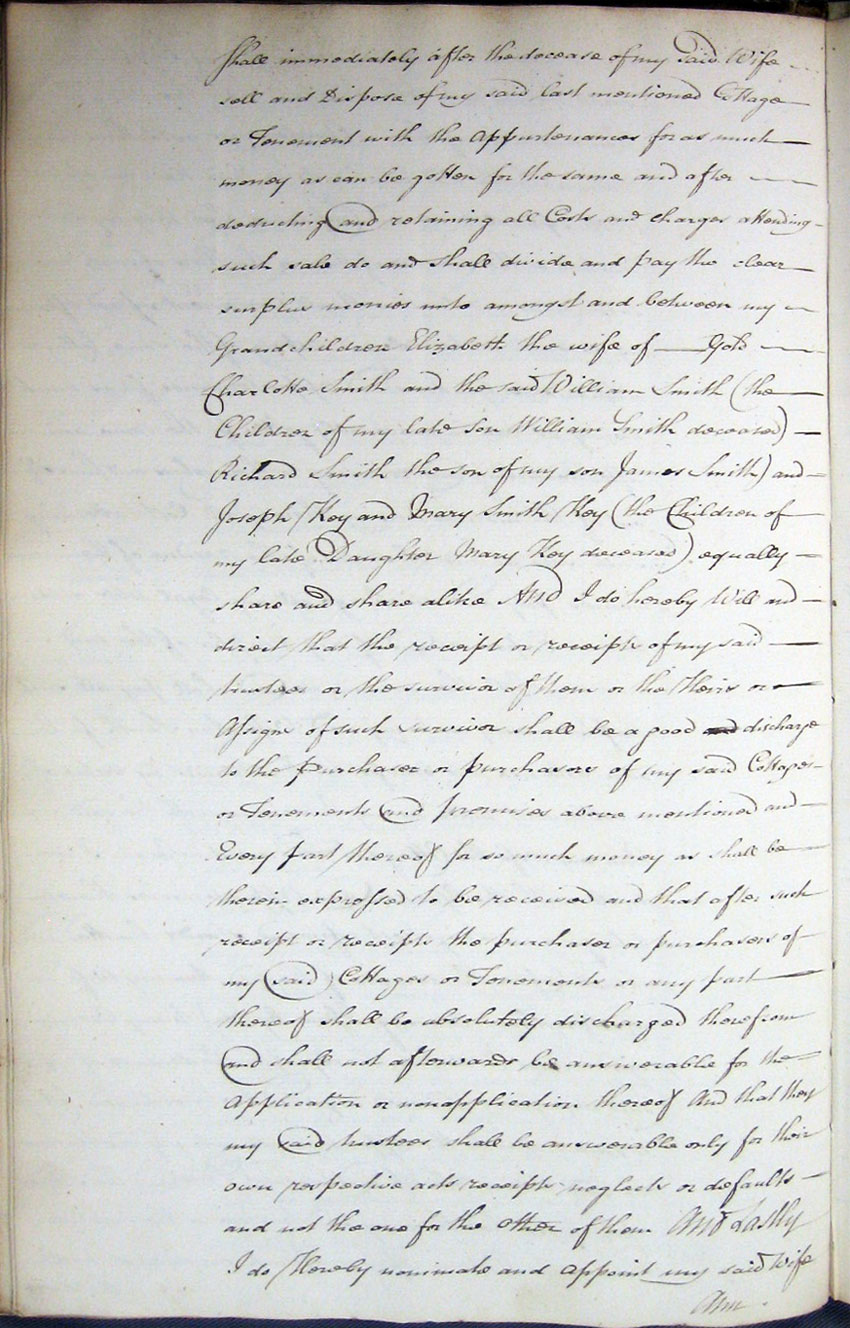 shall immediately after the decease of my said Wife
sell and Dispose of my said last mentioned Cottage
or Tenement with the Appurtenances for as much
money as can be gotten for the same and after
deducting and retaining all Costs and charges attending
such sale do and shall divide and pay the clear
surplus monies unto amongst and between my
Grandchildren Elizabeth the wife of — Gold —
Charlotte Smith and the said William Smith (the
Children of my late Son William Smith deceased) —
Richard Smith the son of my son James Smith) and
Joseph Key and Mary Smith Key (the Children of
my late Daughter Mary Key deceased) equally —
share and share alike And I do hereby Will and
direct that the receipt or receipts of my said
trustees or the survivor of them or the Heirs or
Assigns of such survivor shall be a good discharge
to the Purchaser or purchasers of my said Cottages
or Tenements and premises above mentioned and
Every part thereof for so much money as shall be
therein expressed to be received and that after such
receipt or receipts the purchaser or purchasers of
my said Cottages or Tenements or any part
thereof shall be absolutely discharged therefrom
and shall not afterwards be answerable for the
Application or nonapplication thereof And that they
my said trustees shall be answerable only for their
own respective acts receipts neglects or defaults —
and not the one for the other of them And Lastly
I do Hereby nominate and appoint my said Wife
Ann